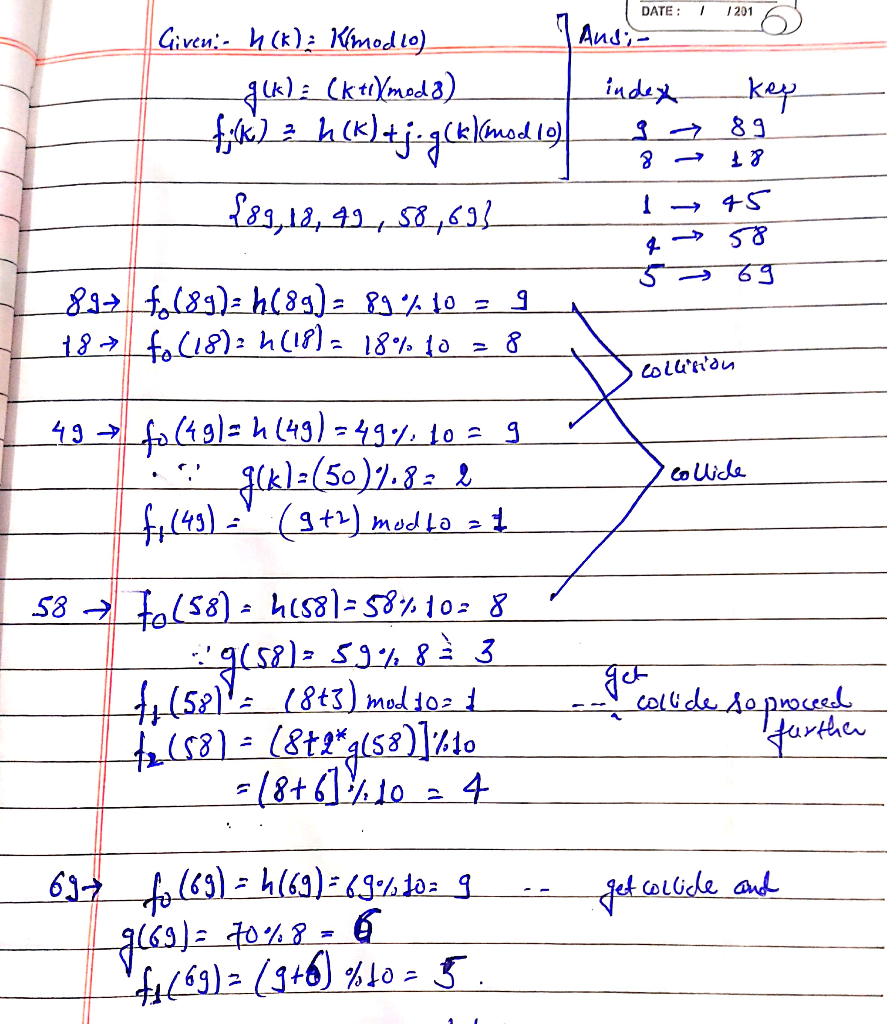 DATE: / /201
Given:- h(k) = K(mod 10)
g(k) = (k+1)(mod 8)
fj(k) = h(k)+j.g(k)(mod 10)
{89,18, 49, 58, 69}
Ans:-
index key
9 → 89
8 → 18
1 → 45
4 → 58
5 → 69
89→ f0(89)= h(89)= 89 % 10 = 9
18→ f0(18)= h(18)= 18% 10 = 8
collision
49 → f0(49)= h(49) = 49 %. 10 = 9
∵ g(k)=(50)%.8= 2
collide
f1(49) = (9+2) mod 10 = 1
58 → f0(58) = h(58)= 58% 10= 8
∵ g(58)= 59% 8 = 3
f1(58) = (8+3) mod 10= 1 -- get collide so proceed further
f2(58) = (8+2*g(58)]%10
=(8+6]% 10 = 4
69→ f0(69) = h(69)=69%10= 9 -- get collide and
g(69)= 70% 8 = 6
f1(69)= (9+6) %10 = 5.